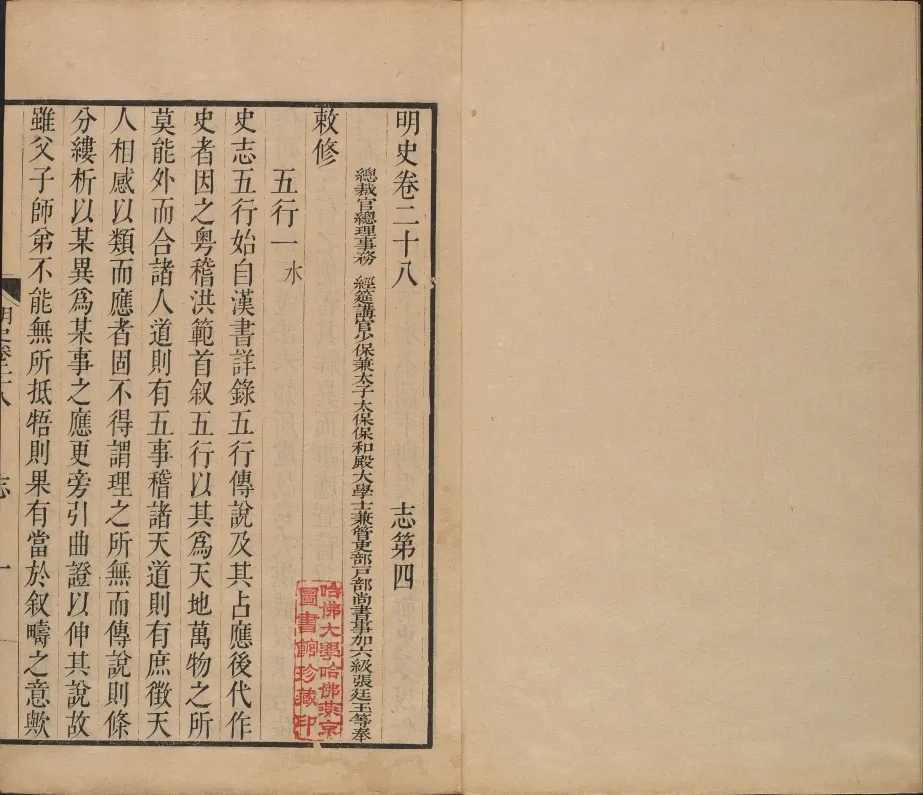 明史卷二十八 志第四
總裁官總理事務 經筵講官少保兼太子太保保和殿大學士兼管吏部戸部尚書事加六級張廷玉等奉
敕修
五行一 水
史志五行始自漢書詳錄五行傳說及其占應後代作
史者因之粵稽洪範首叙五行以其爲天地萬物之所
莫能外而合諸人道則有五事稽諸天道則有庶徵天
人相感以類而應者固不得謂理之所無而傳說則條
分縷析以某異爲某事之應更旁引曲證以伸其說故
雖父子師弟不能無所抵牾則果有當於叙疇之意歟
明史卷二十八 志 一
哈佛大學哈佛燕京
圖書館珍藏印